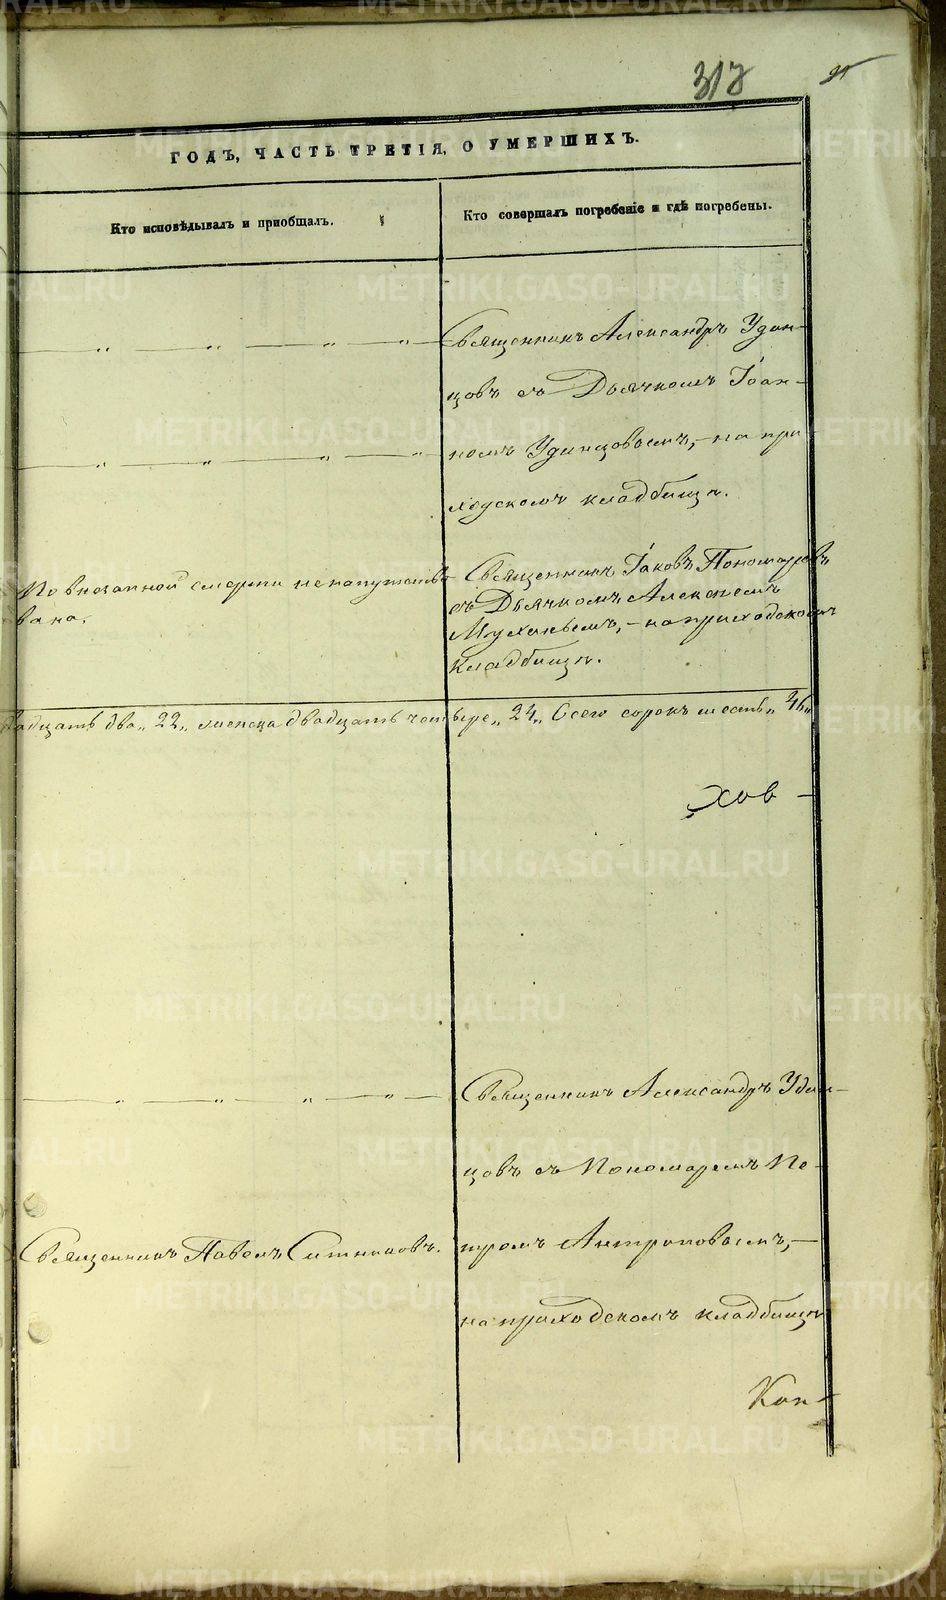 317
ГОДЪ, ЧАСТЬ ТРЕТІЯ, О УМЕРШИХЪ.
Кто исповѣдывалъ и пріобщалъ.
Кто совершалъ погребеніе и гдѣ погребены.
Священникъ Александръ Удин-
цовъ съ Дьячкомъ Іоан-
номъ Удинцовымъ, - на при
ходскомъ кладбищѣ.
По внезапной смерти не напутств
вана.
Священникъ Іаковъ Пономаревъ
съ Дьячкомъ Алексѣемъ
на приходскомъ
кладбищѣ.
двадцать два „22„ женска двадцать четыре „24„ Всего сорокъ шесть „46„
Священникъ Александръ Удин-
цовъ съ Пономаремъ Пе-
Священникъ Павелъ Ситниковъ.
тромъ Антроповымъ, -
на приходскомъ кладбищѣ
METRIKI.GASO-URAL.RU